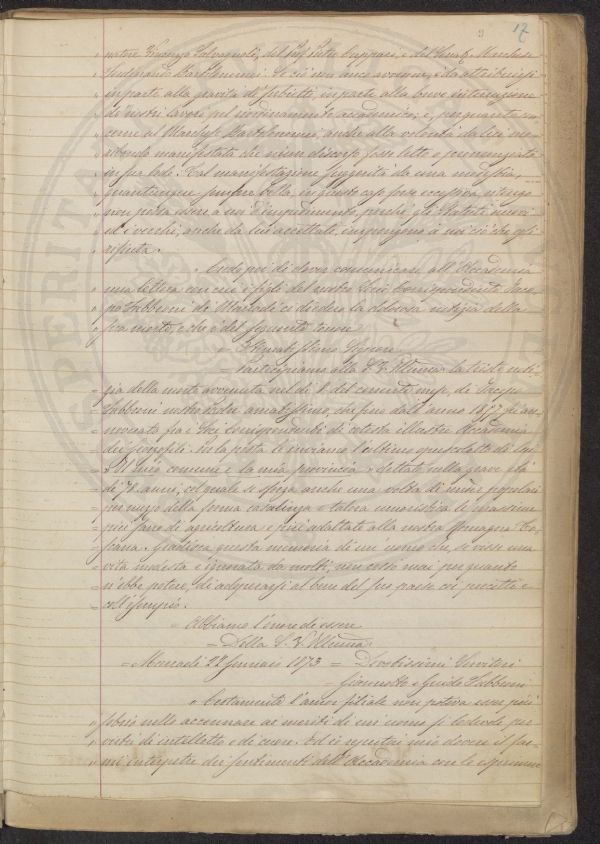 17
natore Vincenzo Salvagnoli, del Sig. Pietro Cuppari, e del Senat. Marchese
Ferdinando Bartolommei. Se ciò non anco avvenne, è da attribuirsi
in parte alla gravità di subietti, in parte alla breve interruzione
de' nostri lavori pel riordinamento accademico; e, per quanto con-
cerne al Marchese Bartolommei, anche alla volontà da lui mo-
ribondo manifestata che niun discorso fosse letto o pronunziato
in sua lode. Tal manifestazione suggerita da una modestia,
quantunque sempre bella, in questo caso forse eccessiva, ritengo
non possa essere a noi d'impedimento, perchè gli Statuti nuovi
ed i vecchi, anche da lui accettati, impongono a noi ciò che egli
rifiuta.
Credo poi di dover comunicare all'Accademia
una lettera con cui i figli del nostro Socio Corrispondente Jaco-
po Fabbroni di Marradi ci diedero la dolorosa notizia della
sua morte, e che è del seguente tenore
Illustrissimo Signore
Partecipiamo alla S. V. Illma la triste noti-
zia della morte avvenuta nel dì 8 del corrente mese, di Jacopo
Fabbroni nostro Padre amatissimo, che fino dall'anno 1857 fu an-
noverato fra i Soci corrispondenti di cotesta illustre Accademia
dei Georgofili. Per la posta le inviamo l'ultimo opuscoletto di lui
"Il mio comune e la mia provincia" dettato nella grave età
di 78 anni, col quale si sforza anche una volta di render popolari
per mezzo della forma casalinga e talora umoristica le massime
più sane di agricoltura e più adattate alla nostra Romagna To-
scana. Gradisca questa memoria di un uomo che, se visse una
vita modesta e ignorata da molti, non cessò mai per quanto
n'ebbe potere, di adoprarsi al bene del suo paese coi precetti e
coll'esempio.
Abbiamo l'onore di essere
Della S. V. Illma
Marradi 22 Gennaio 1873 = Devotissimi Servitori
Giannetto e Guido Fabbroni
Certamente l'amor filiale non poteva esser più
sobrio nello accennare ai meriti di un uomo sì lodevole per
virtù di intelletto e di cuore. Ed io reputai mio dovere il far-
mi interpetre dei sentimenti dell'Accademia con lo esprimere